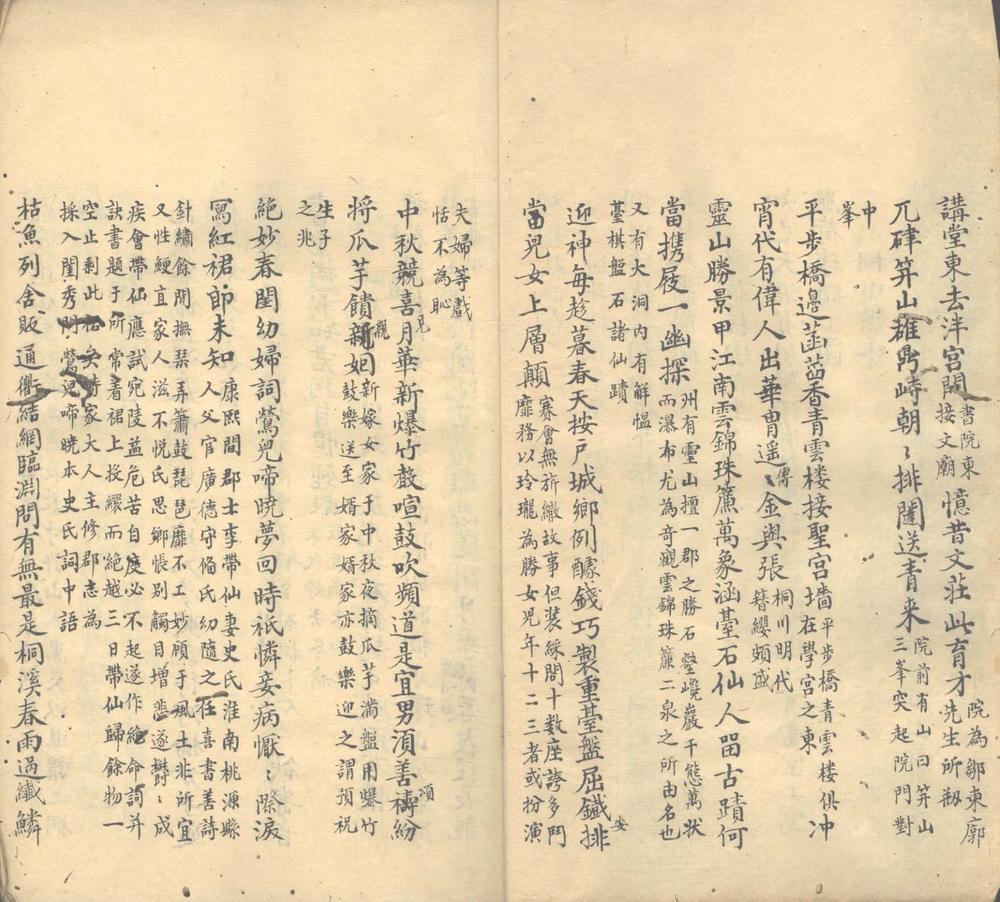 講堂東去泮宮開書院東接文廟憶昔文莊此育才院為鄒東廓先生所刱
兀硉筓山雄鼎峙朝〻排闥送青来院前有山曰筓山三峯突起院門對
中峯
平步橋邊菡萏香青雲楼接聖宮墻平步橋青雲楼俱在學宮之東冲
宵代有偉人出華胄遥傳金與張桐川明代簪纓頗盛
靈山勝景甲江南雲錦珠簾萬象涵臺石仙人畱古蹟何
當携屐一幽探州有靈山擅一郡之勝石壑巉巖千態萬狀而瀑布尤為奇觀雲錦珠簾二泉之所由名也
又有大洞内有解愠臺棋盤石諸仙蹟
迎神每趁暮春天按戸城鄉例醵錢巧製重臺盤屈鐵安排
當兒女上層顛賽會無旂繖故事但装綵閣十数座誇多鬥靡務以玲瓏為勝女児年十二三者或扮演
夫婦等戲恬不為恥
中秋競喜月華新爆竹聲喧鼓吹頻道是宜男湏善禱紛
将瓜芋饋親姻新嫁女家于中秋夜摘瓜芋满盤用爆竹鼓樂送至婿家婿家亦鼓樂迎之謂預祝
生子之兆
絶妙春閨幼婦詞鶯兒啼曉夢回時祇憐妾病懨〻際淚
寫紅裙郎未知康熙間郡士李帶仙妻史氏淮南桃源縣人父官廣德守偹氏幼隨之任喜書善詩
針繡餘閒撫琹弄簫鼓琵琶靡不工妙顧于風土非所宜又性鯁直家人滋不悦氏思鄉悵别觸目增悲遂鬱〻成
疾會帶仙應試宛陵益危苦自度必不起遂作絶命詞并訣書題于所常著裙上投繯而絶越三日帶仙歸餘物一
空止剩此裙矣時家大人主修郡志為採入閨秀門鶯兒啼曉本史氏詞中語
枯漁列舎販通衢結網臨淵問有無最是桐溪春雨過纖鱗